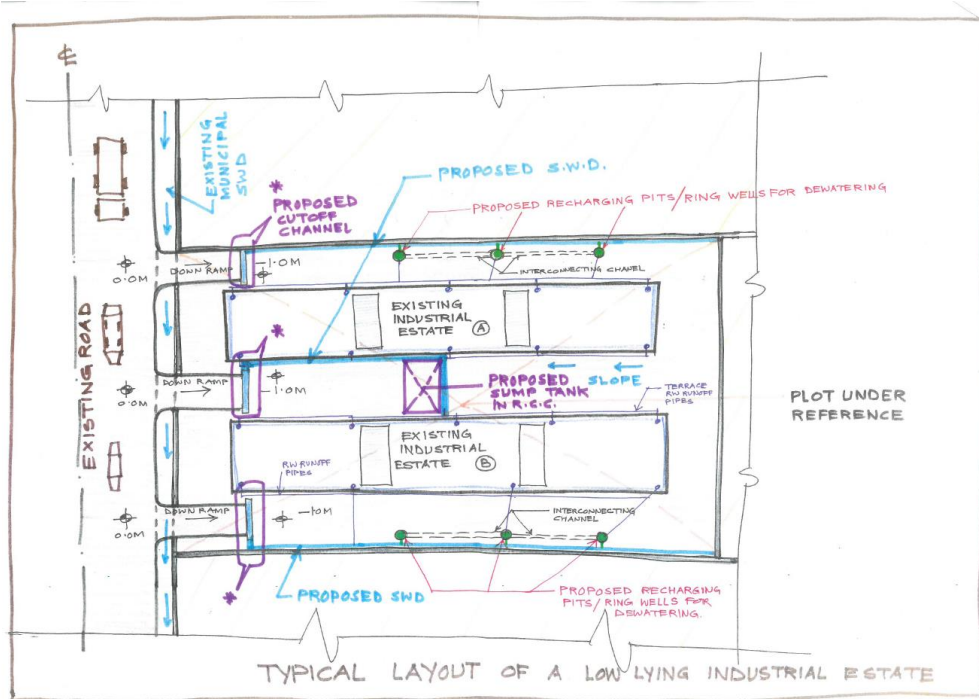 ℄
EXISTING
MUNICIPAL
SWD
*
PROPOSED
CUTOFF
CHANNEL
PROPOSED S.W.D.
PROPOSED RECHARGING PITS/RING WELLS FOR DEWATERING
0.0M
DOWN RAMP
-1.0M
INTERCONNECTING CHANEL
EXISTING
INDUSTRIAL
ESTATE A
*
PROPOSED S.W.D
EXISTING ROAD
0.0M
DOWN RAMP
-1.0M
PROPOSED
SUMP TANK
IN R.C.C.
SLOPE
TERRACE
RW RUNOFF
PIPES
PLOT UNDER
REFERENCE
EXISTING
INDUSTRIAL
ESTATE B
RW RUNOFF
PIPES
0.0M
DOWN RAMP
-10M
INTERCONNECTING
CHANNEL
*
PROPOSED SWD
PROPOSED RECHARGING
PITS/RING WELLS FOR
DEWATERING.
TYPICAL LAYOUT OF A LOW LYING INDUSTRIAL ESTATE